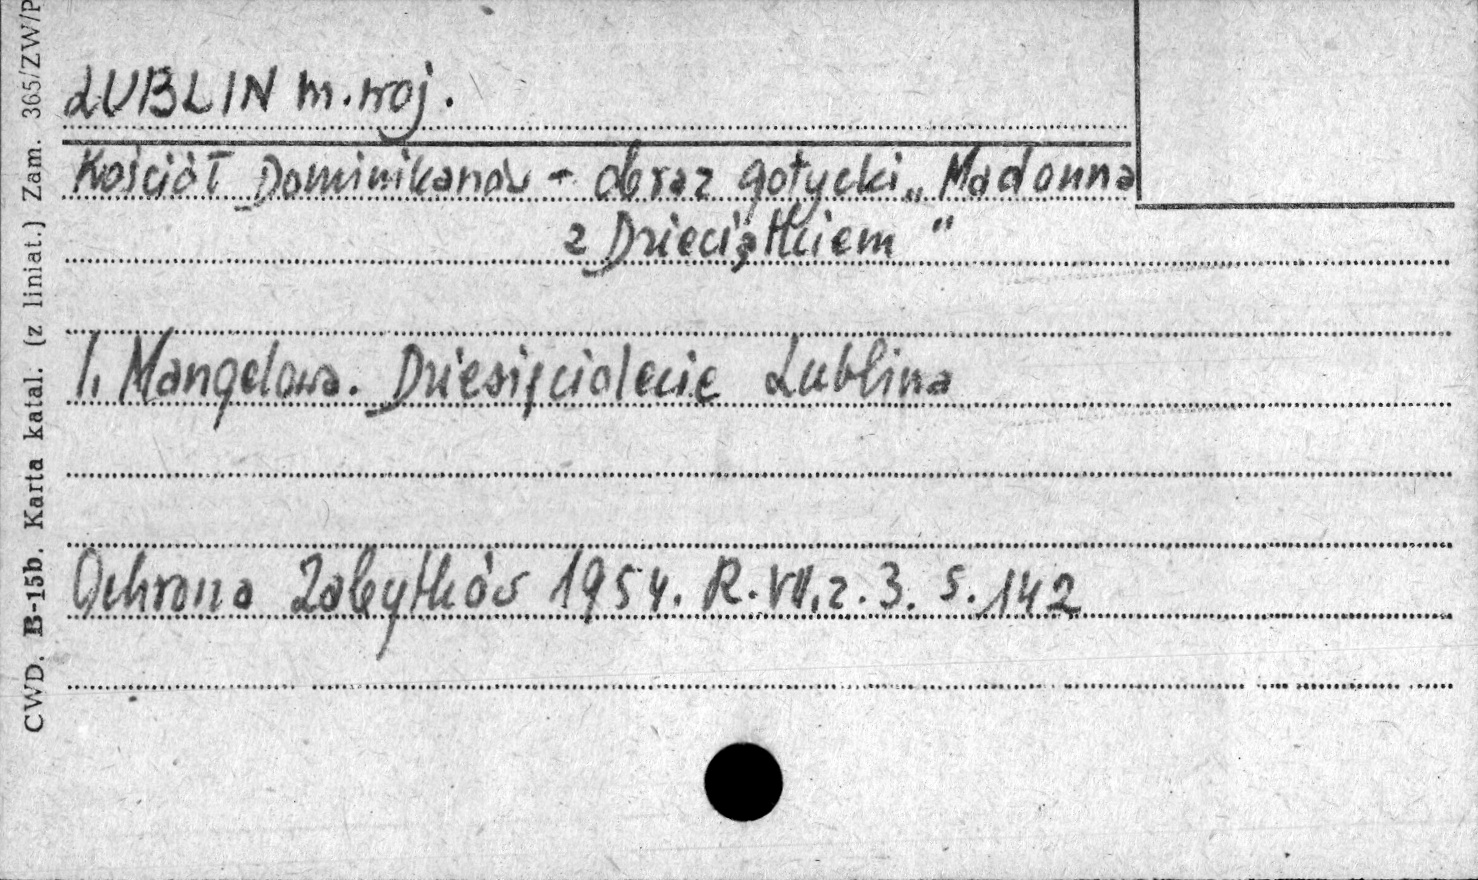 LUBLIN m. woj.
Kościół Dominikanów - obraz gotycki „Madonna
z Dzieciątkiem"
I. Mangelowa. Dziesięciolecie Lublina
Ochrona Zabytków 1954. R. VII, z. 3. s. 142
CWD. B-15b. Karta katal. (z liniat.) Zam. 365/ZW/P